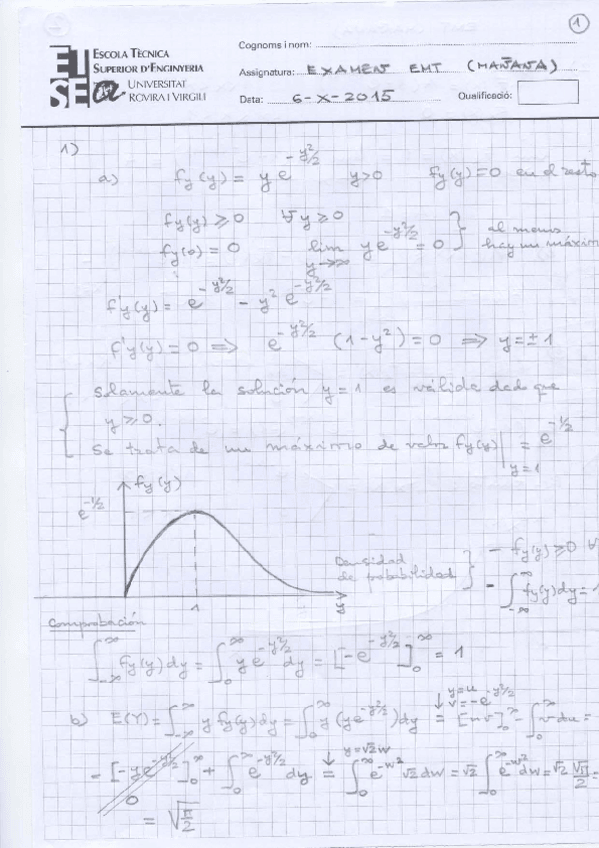 1
ESCOLA TÈCNICA
SUPERIOR D'ENGINYERIA
UNIVERSITAT
ROVIRA I VIRGILI
Cognoms i nom:
Assignatura: EXAMEN EMT (MAÑANA)
Data: 6-X-2015 Qualificació:
1)
a) fy(y) = y e^{-y²/2} y>0 fy(y)=0 en el resto
fy(y) ⩾ 0 ∀ y ⩾ 0
fy(0) = 0 lim_{y→∞} y e^{-y²/2} = 0 } al menos hay un máxim
f'y(y) = e^{-y²/2} - y² e^{-y²/2}
f'y(y) = 0 ⟹ e^{-y²/2} (1-y²) = 0 ⟹ y = ±1
Solamente la solución y=1 es válida dado que
y ⩾ 0.
Se trata de un máximo de valor fy(y)|_{y=1} = e^{-1/2}
fy(y)
e^{-1/2}
1
y
Densidad de probabilidad } - fy(y) ⩾ 0 ∀
- ∫_{-∞}^{∞} fy(y)dy = 1
Comprobación
∫_{-∞}^{∞} fy(y)dy = ∫_0^∞ y e^{-y²/2} dy = [-e^{-y²/2}]_0^∞ = 1
b) E(Y) = ∫_{-∞}^{∞} y fy(y)dy = ∫_0^∞ y (y e^{-y²/2}) dy = ↓ y=u v=-e^{-y²/2} [uv]_0^∞ - ∫_0^∞ v du =
- [-y e^{-y²/2}]_0^∞ + ∫_0^∞ e^{-y²/2} dy = ↓ y=√2 w ∫_0^∞ e^{-w²} √2 dw = √2 ∫_0^∞ e^{-w²} dw = √2 √π/2 =
0
= √(π/2)